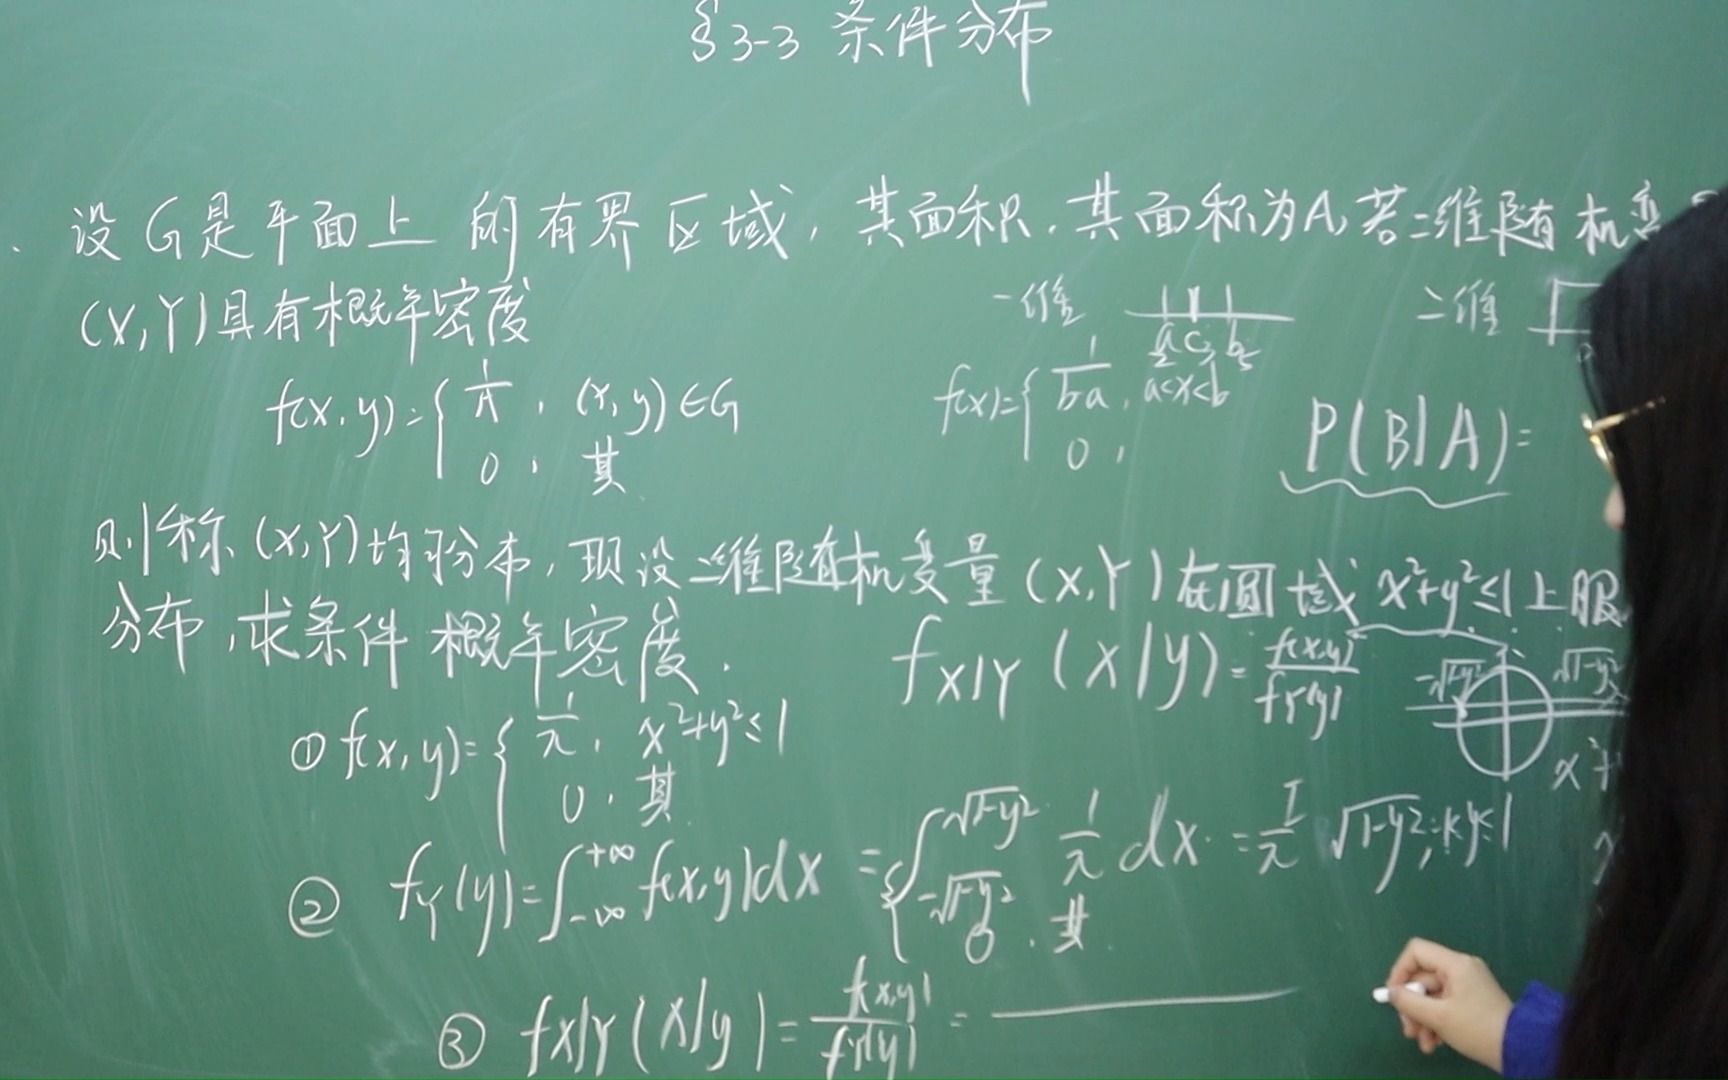 §3-3 条件分布
设G是平面上的有界区域，其面积.其面积为A,若二维随机变
(X,Y)具有概率密度
一维
a c b
二维
f(x,y)={ 1/A , (x,y)∈G
0 , 其
f(x)={ 1/b-a , a<x<b
0 ,
P(B|A)=
则称(X,Y)均匀分布,现设二维随机变量(X,Y)在圆域x²+y²≤1上服
分布,求条件概率密度.
f_{X|Y}(x|y)=f(x,y)/f_Y(y)
-√1-y² √1-y²
① f(x,y)={ 1/π , x²+y²≤1
0 , 其
② f_Y(y)=∫_{-∞}^{+∞} f(x,y)dx ={ ∫_{-√1-y²}^{√1-y²} 1/π dx =2/π √1-y², -1≤y≤1
0 , 其
③ f_{X|Y}(x|y)=f(x,y)/f_Y(y) =